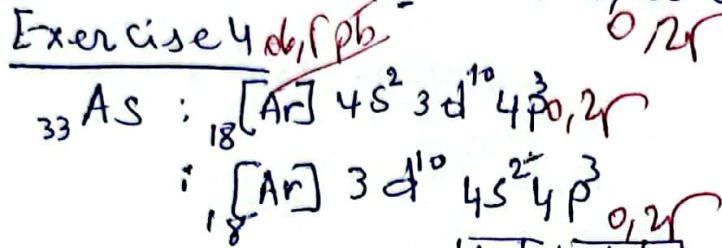 Exercise 4 06,5 pts 0,25
₃₃As : ₁₈[Ar] 4s² 3d¹⁰ 4p³ 0,25
: ₁₈[Ar] 3d¹⁰ 4s² 4p³ 0,25